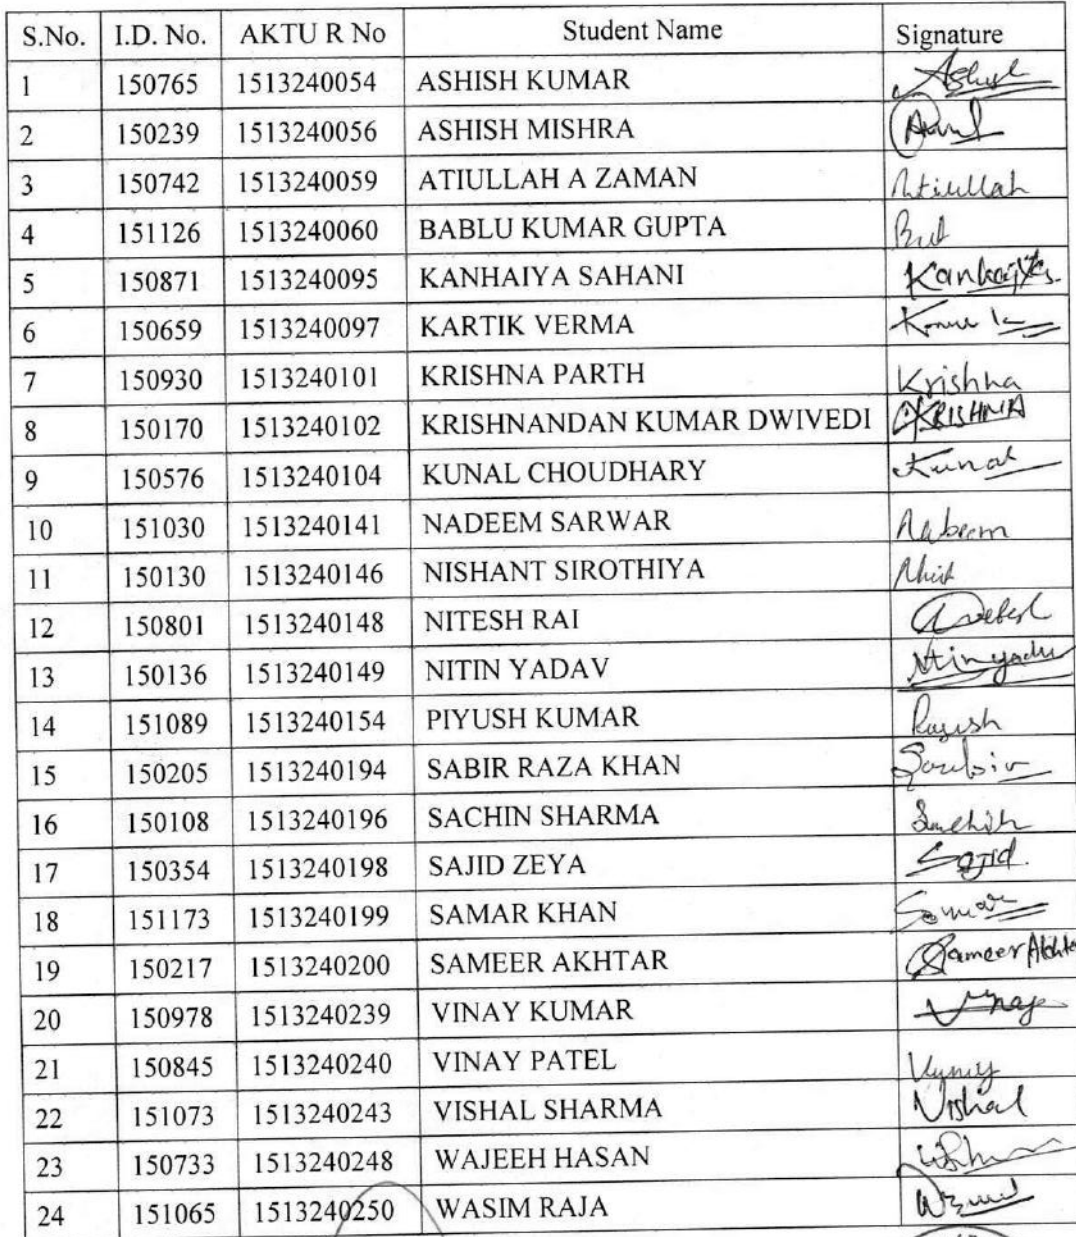 S.No. I.D. No. AKTU R No Student Name Signature
1 150765 1513240054 ASHISH KUMAR Ashish
2 150239 1513240056 ASHISH MISHRA
3 150742 1513240059 ATIULLAH A ZAMAN Atiullah
4 151126 1513240060 BABLU KUMAR GUPTA
5 150871 1513240095 KANHAIYA SAHANI
6 150659 1513240097 KARTIK VERMA
7 150930 1513240101 KRISHNA PARTH Krishna
8 150170 1513240102 KRISHNANDAN KUMAR DWIVEDI KRISHNA
9 150576 1513240104 KUNAL CHOUDHARY Kunal
10 151030 1513240141 NADEEM SARWAR
11 150130 1513240146 NISHANT SIROTHIYA
12 150801 1513240148 NITESH RAI
13 150136 1513240149 NITIN YADAV
14 151089 1513240154 PIYUSH KUMAR
15 150205 1513240194 SABIR RAZA KHAN
16 150108 1513240196 SACHIN SHARMA
17 150354 1513240198 SAJID ZEYA Sajid
18 151173 1513240199 SAMAR KHAN Samar
19 150217 1513240200 SAMEER AKHTAR Sameer Akhta
20 150978 1513240239 VINAY KUMAR Vinay
21 150845 1513240240 VINAY PATEL
22 151073 1513240243 VISHAL SHARMA Vishal
23 150733 1513240248 WAJEEH HASAN
24 151065 1513240250 WASIM RAJA